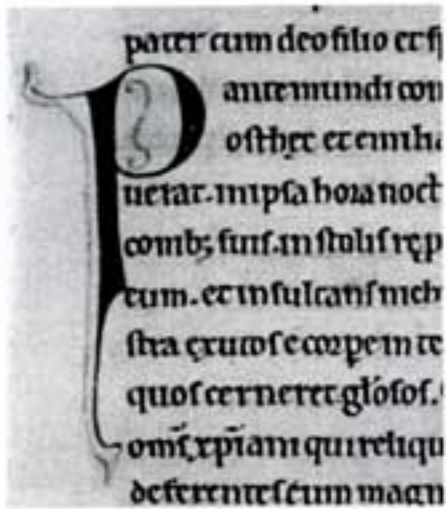 pater cum deo filio et
ante mundi con
ost hęc et enim
uerat. in ipsa hora noct
comb; suis. in stolis
tum. et insultans mich
stra exutos e corpe in te
quos cerneret gl̅osos.
om̅s xp̅iani qui reliqu
deferentes cum magn